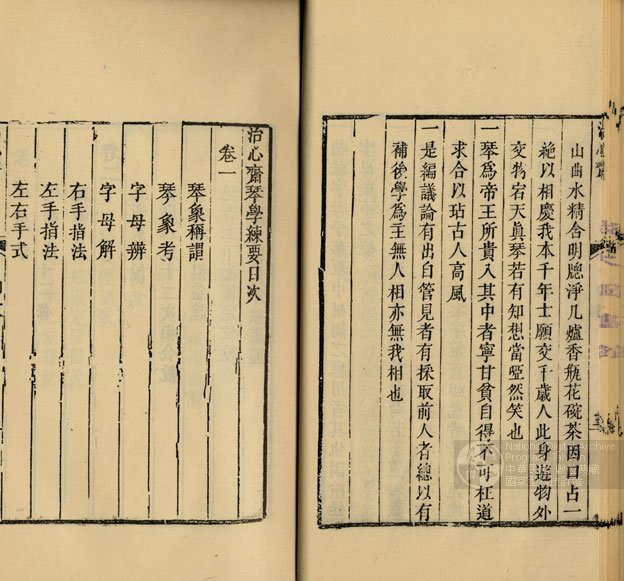 治心齋
山曲水精舍明牕淨几爐香瓶花碗茶因口占一
絶以相慶我本千年士願交千歲人此身遊物外
交物宕天眞琴若有知想當啞然笑也
一琴爲帝王所貴入其中者寧甘貧自得不可枉道
求合以玷古人高風
一是編議論有出自管見者有採取前人者總以有
補後學爲主無人相亦無我相也
治心齋琴學練要目次
卷一
琴象稱謂
琴象考
字母辨
字母解
右手指法
左手指法
左右手式